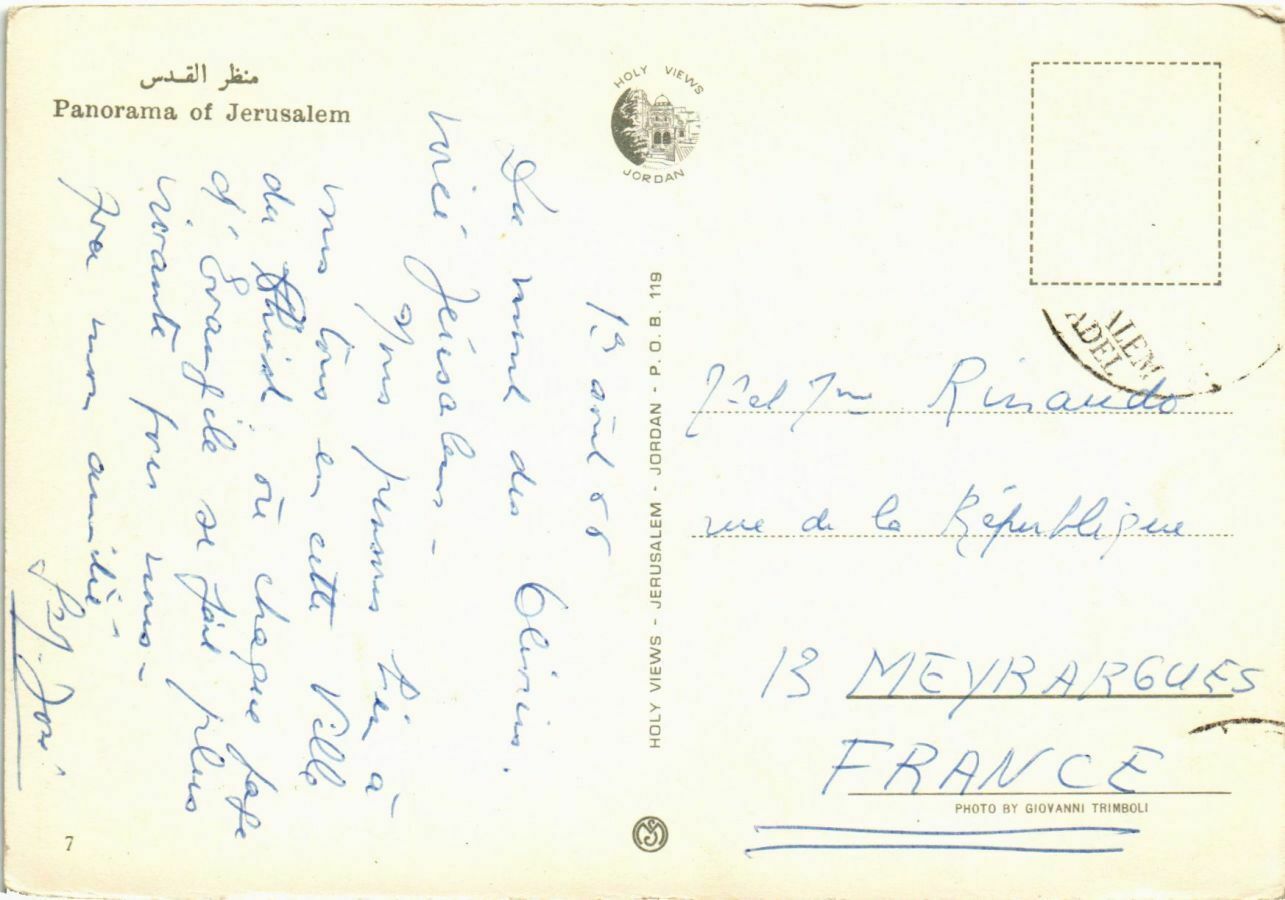 منظر القدس
Panorama of Jerusalem
HOLY VIEWS
JORDAN
1er août 66
Du mont des Oliviers.
voici Jérusalem -
Nous pensons bien à
vous tous en cette Ville
du Christ où chaque page
d'Evangile se fait plus
vivante pour nous -
Avec mon amitié -
José
HOLY VIEWS - JERUSALEM - JORDAN - P. O. B. 119
ALEM
ADEL
Mr et Mme Rinaudo
rue de la République
13 MEYRARGUES
FRANCE
PHOTO BY GIOVANNI TRIMBOLI
7